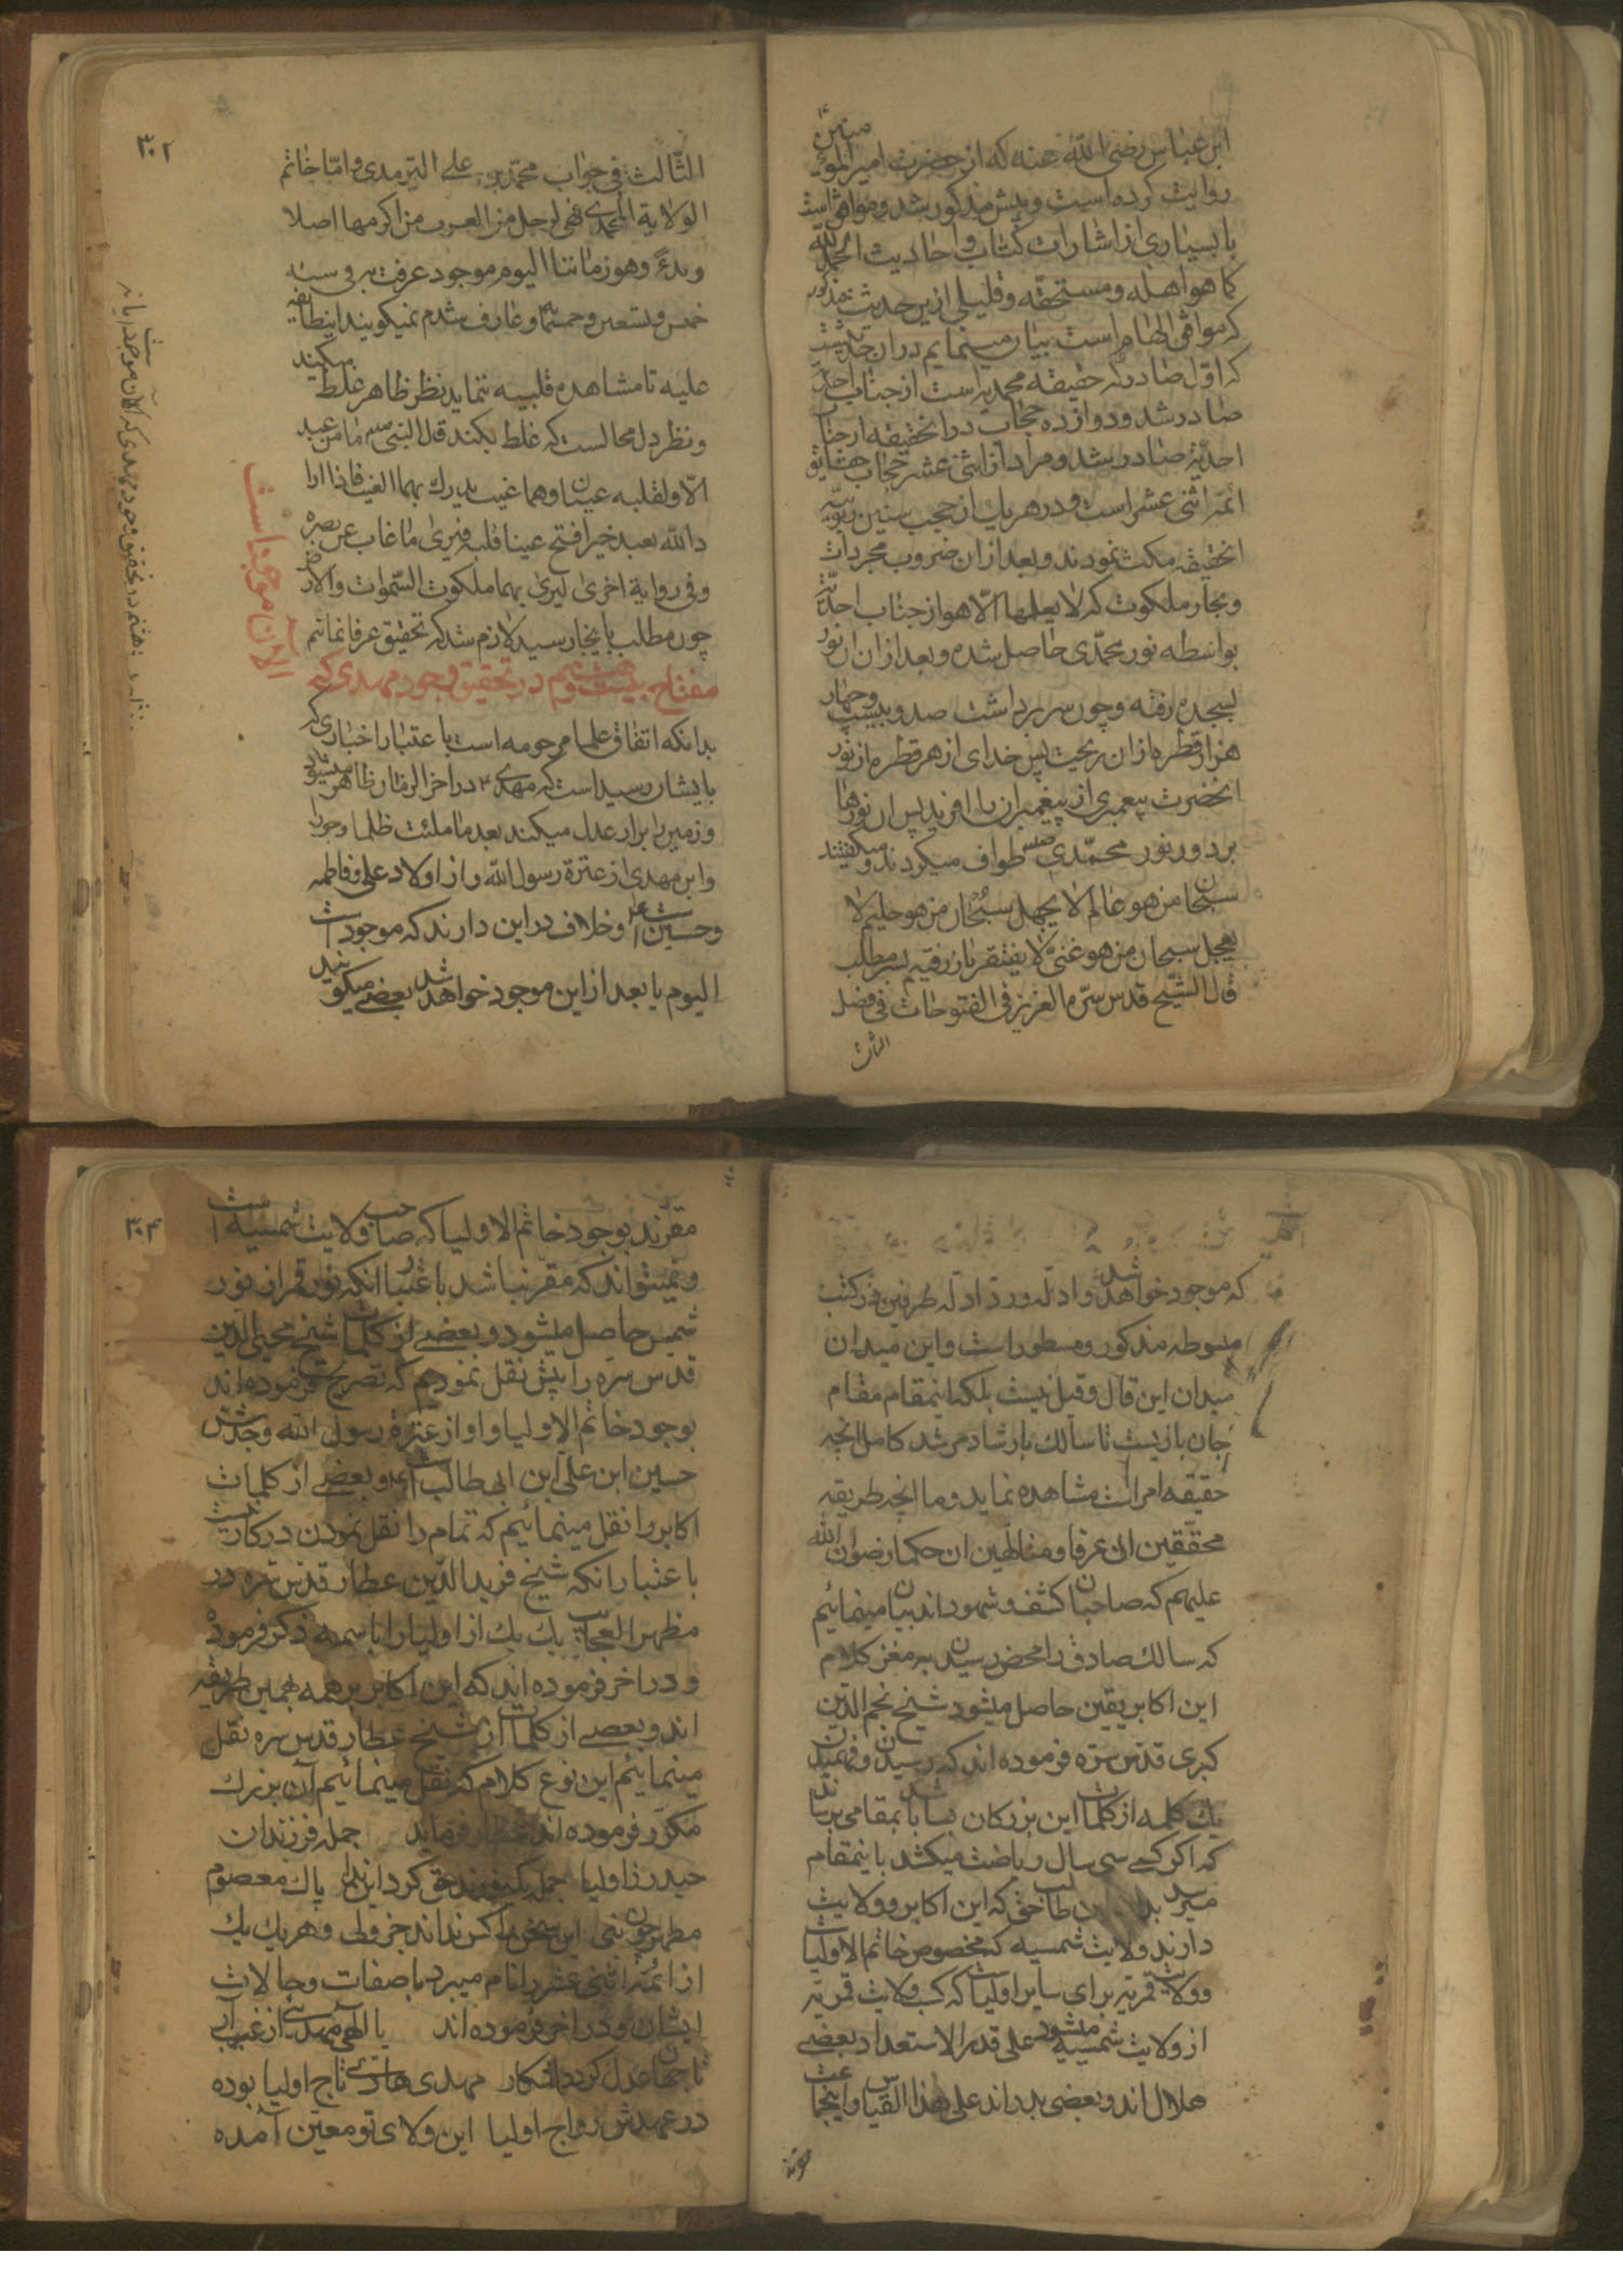 ابن عباس رضی الله عنه که از حضرت امیر المؤمنین ع
روایت کرده است و پیش مذکور شد و موافق است
با بسیاری از اشارات کتاب و احادیث الحمد لله
کما هو اهله و مستحقه و قلیلی ازین حدیث مذکور
که موافق الهام است بیان مینمایم در ان حدیث
که اول صادر که حقیقه محمدیه است از جناب احد
صادر شد و دوازده حجاب در انحقیقه از جناب
احدیّه صادر شد و مراد از اثنی عشر حجاب حقایق
ائمه اثنی عشر است و در هر یک از حجب سنین ربوبیه
انحقیقه مکث نمودند و بعد از ان ضروب مجردات
و بحار ملکوت که لا یعلمها الّا هو از جناب احدیّة
بواسطه نور محمّدی حاصل شده و بعد از ان ان نور
بسجده رفته و چون سر برداشت صد و بیست و چهار
هزار قطره از ان ریخت پس خدای از هر قطره از نور
انحضرت پیغمبری از پیغمبران را افرید پس ان نورها
بر دور نور محمّدی صلعم طواف میکردند و میکفتند
سبحان من هو عالم لا یجهل سبحان من هو حلیم لا
یعجل سبحان من هو غنیّ لا یفتقر بسر مطلب
قال الشیخ قدس سرّه العزیز فی الفتوحات فی فصل
الثالث
۳۰۲
الثّالث فی جواب محمّد بن علی الترمدی و امّا خاتم
الولایة المحمدیة فهی لرجل من العرب من اکرمها اصلا
و یدءً و هو زماننا الیوم موجود عرفت به فی سنه
خمس و تسعین و خمسمائه و عارف شدم نمیکویند اینطایفه
علیه تا مشاهده قلبیه ننماید نظر ظاهر غلط میکند
و نظر دل محالست که غلط بکند قال النبی صلعم ما من عبد
الّا و لقلبه عینان و هما غیب یدرک بهما الغیب فاذا ارا
د الله بعبد خیرا فتح عینا قلبه فیری ما غاب عن بصره
و فی روایة اخری لیری بهما ملکوت السّموات و الارض
چون مطلب باینجا رسید لازم شد که تحقیق عرفا نمائیم
مفتاح بیست و هشتم در تحقیق وجود مهدی که
الان موجود است
بدانکه اتفاق علما مرحومه است با عتبار اخباری که
بایشان رسیده است که مهدی ع در اخر الزمان ظاهر میشود
و زمین را بر از عدل میکند بعد ما ملئت ظلما و جورا
و این مهدی از عترة رسول الله و از اولاد علی و فاطمه
و حسین است ع و خلاف در این دارند که موجود است
الیوم یا بعد از این موجود خواهد شد بعضی میکویند
که موجود خواهد شد و ادله و رد ادله طرفین در کتب
مبسوطه مذکور و مسطور است و این میدان
میدان این قال و قیل نیست بلکه اینمقام مقام
جان بازیست تا سالک بارشاد مرشد کامل انچه
حقیقه امر است مشاهده نماید و ما انچه طریقه
محققین ان عرفا و متالهین ان حکما رضوان الله
علیهم که صاحبان کشف و شهود اند بیان مینمائیم
که سالک صادق را محض رسیدن به مغز کلام
این اکابر یقین حاصل میشود شیخ نجم الدّین
کبری قدس سرّه فرموده اند که رسیدن و فهمیدن
یک کلمه از کلمات این بزرکان بسا باشد بمقامی برساند
که اکر کسی سی سال ریاضت میکشد باینمقام
میرسد طالب حق که این اکابر دو ولایت
دارند ولایت شمسیه که مخصوص خاتم الاولیاست
و ولایت قمریّه برای سایر اولیاست که کسب ولایت قمریّه
از ولایت شمسیّه میشود علی قدر الاستعداد بعضی
هلال اند و بعضی بدر اند علی هذا القیاس و اینجماعت
۳۰۴
مقرّند بوجود خاتم الاولیا که صاحب ولایت شمسیه است
و نمیتواند که مقر نباشد باعتبار انکه نور قمر از نور
شمس حاصل میشود و بعضی از کلمات شیخ محیی الدین
قدس سره را پیش نقل نمودیم که تصریح فرموده اند
بوجود خاتم الاولیا و او از عترة رسول الله و جدّش
حسین ابن علی ابن ابی طالب است ع و بعضی از کلمات
اکابر را نقل مینمائیم که تمام را نقل نمودن در کار نیست
باعتبار انکه شیخ فرید الدّین عطار قدس سره در
مظهر العجایب یک یک از اولیا را با سمه ذکر فرموده
و در اخر فرموده اند که این اکابر بر همه بهمین طریقه
اند و بعضی از کلمات از شیخ عطار قدس سره نقل
مینمائیم این نوع کلام که نقل مینمائیم آن بزرک
مکرّر فرموده اند عطار فرماید جمله فرزندان
حیدر ز اولیا جمله یک نورند حق کرد این ندا پاک معصوم
مطهر چون نبی این سخن را کس نداند جز ولی و هر یک یک
از ائمّه اثنی عشر را نام میبرد با صفات و حالات
ایشان و در اخر فرموده اند یا الهی مهدی از غیب آر
تا جهان عدل کردد اشکار مهدی هادیست تاج اولیا بوده
در عهدش رواج اولیا این ولای تو معین آمده